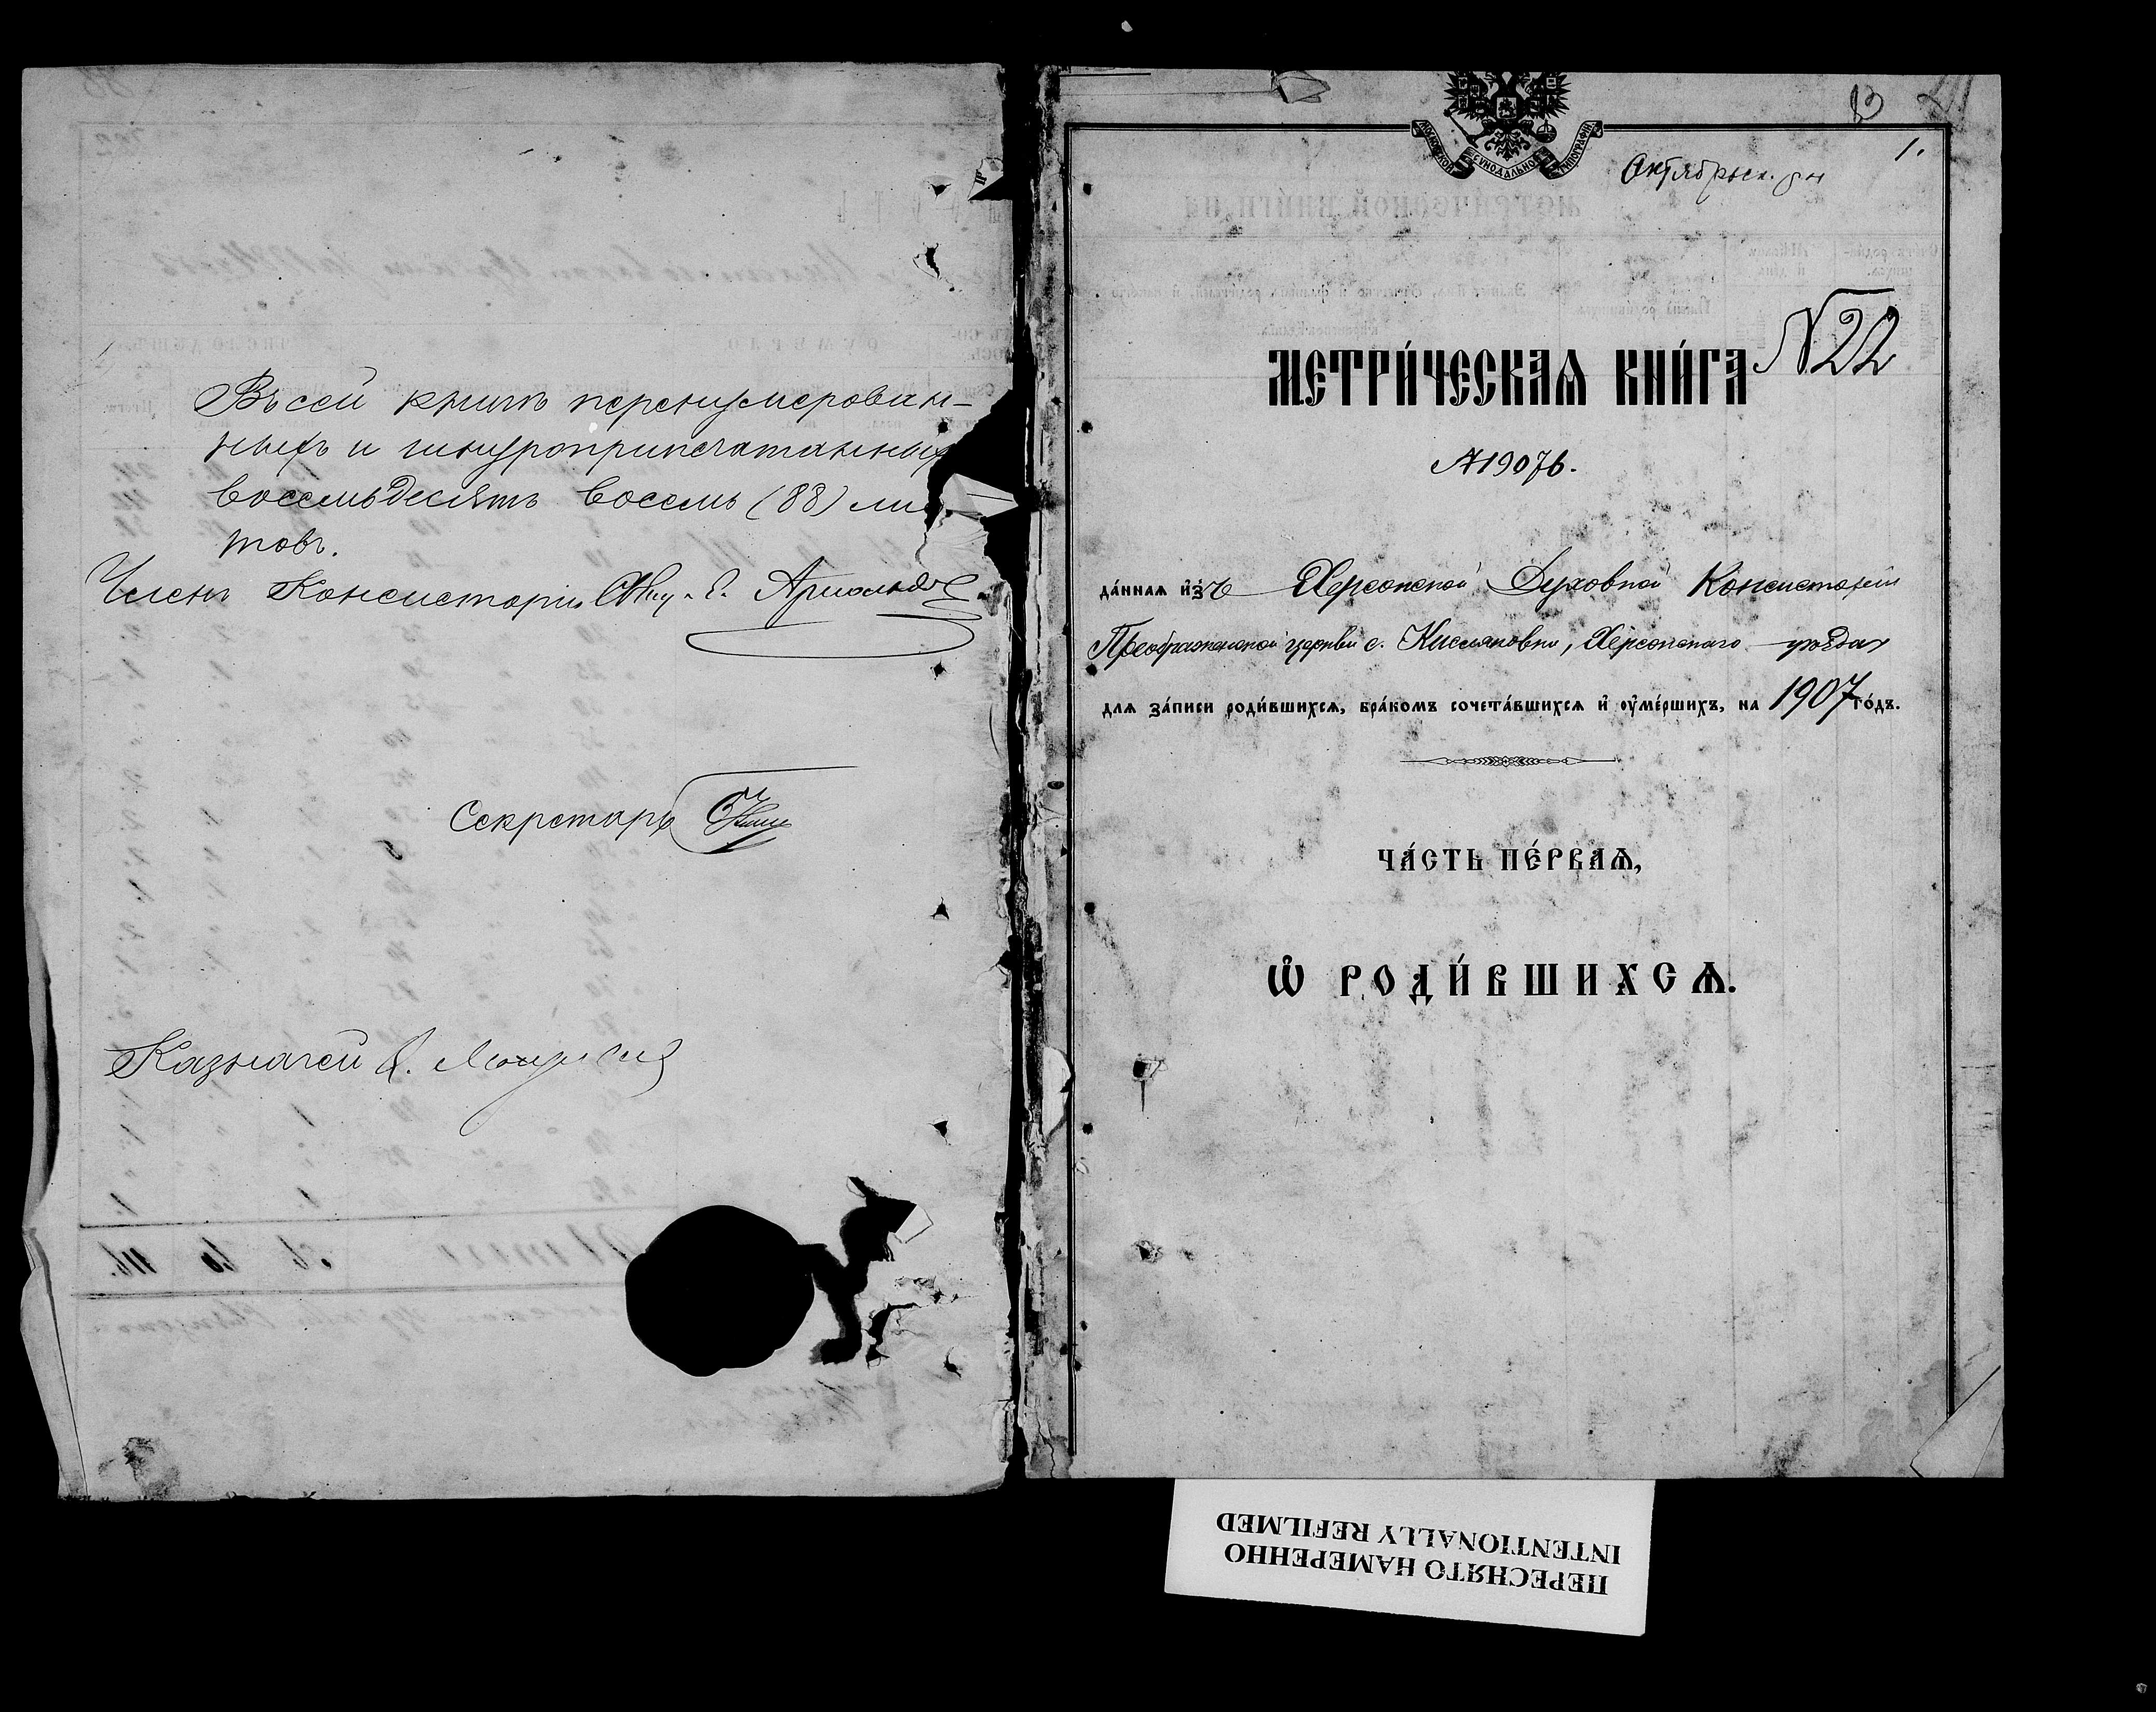 Въ сей книгѣ перенумерован-
ныхъ и шнуроприпечатанныхъ
восемьдесятъ восемь (88) лис
товъ.
Членъ Консисторіи
Секретарь
Казначей
1.
МОСКОВСКОЙ СѴНОДАЛЬНОЙ ТИПОГРАФІИ
№22
МЕТРИ́ЧЕСКАѦ КНИ́ГА
да́ннаѧ и҆зъ Херсонской Духовной Консисторіи
Преображенской церкви с. Кисляковки, Херсонскаго уѣзда
длѧ за́писи роди́вшихсѧ, бра́комъ сочета́вшихсѧ и҆ ѹ҆ме́ршихъ, на 1907 го́дъ.
ЧА́СТЬ ПЕ́РВАѦ,
Ѡ҆ РОДИ́ВШИХСѦ.
ПЕРЕСНЯТО НАМЕРЕННО
INTENTIONALLY REFILMED